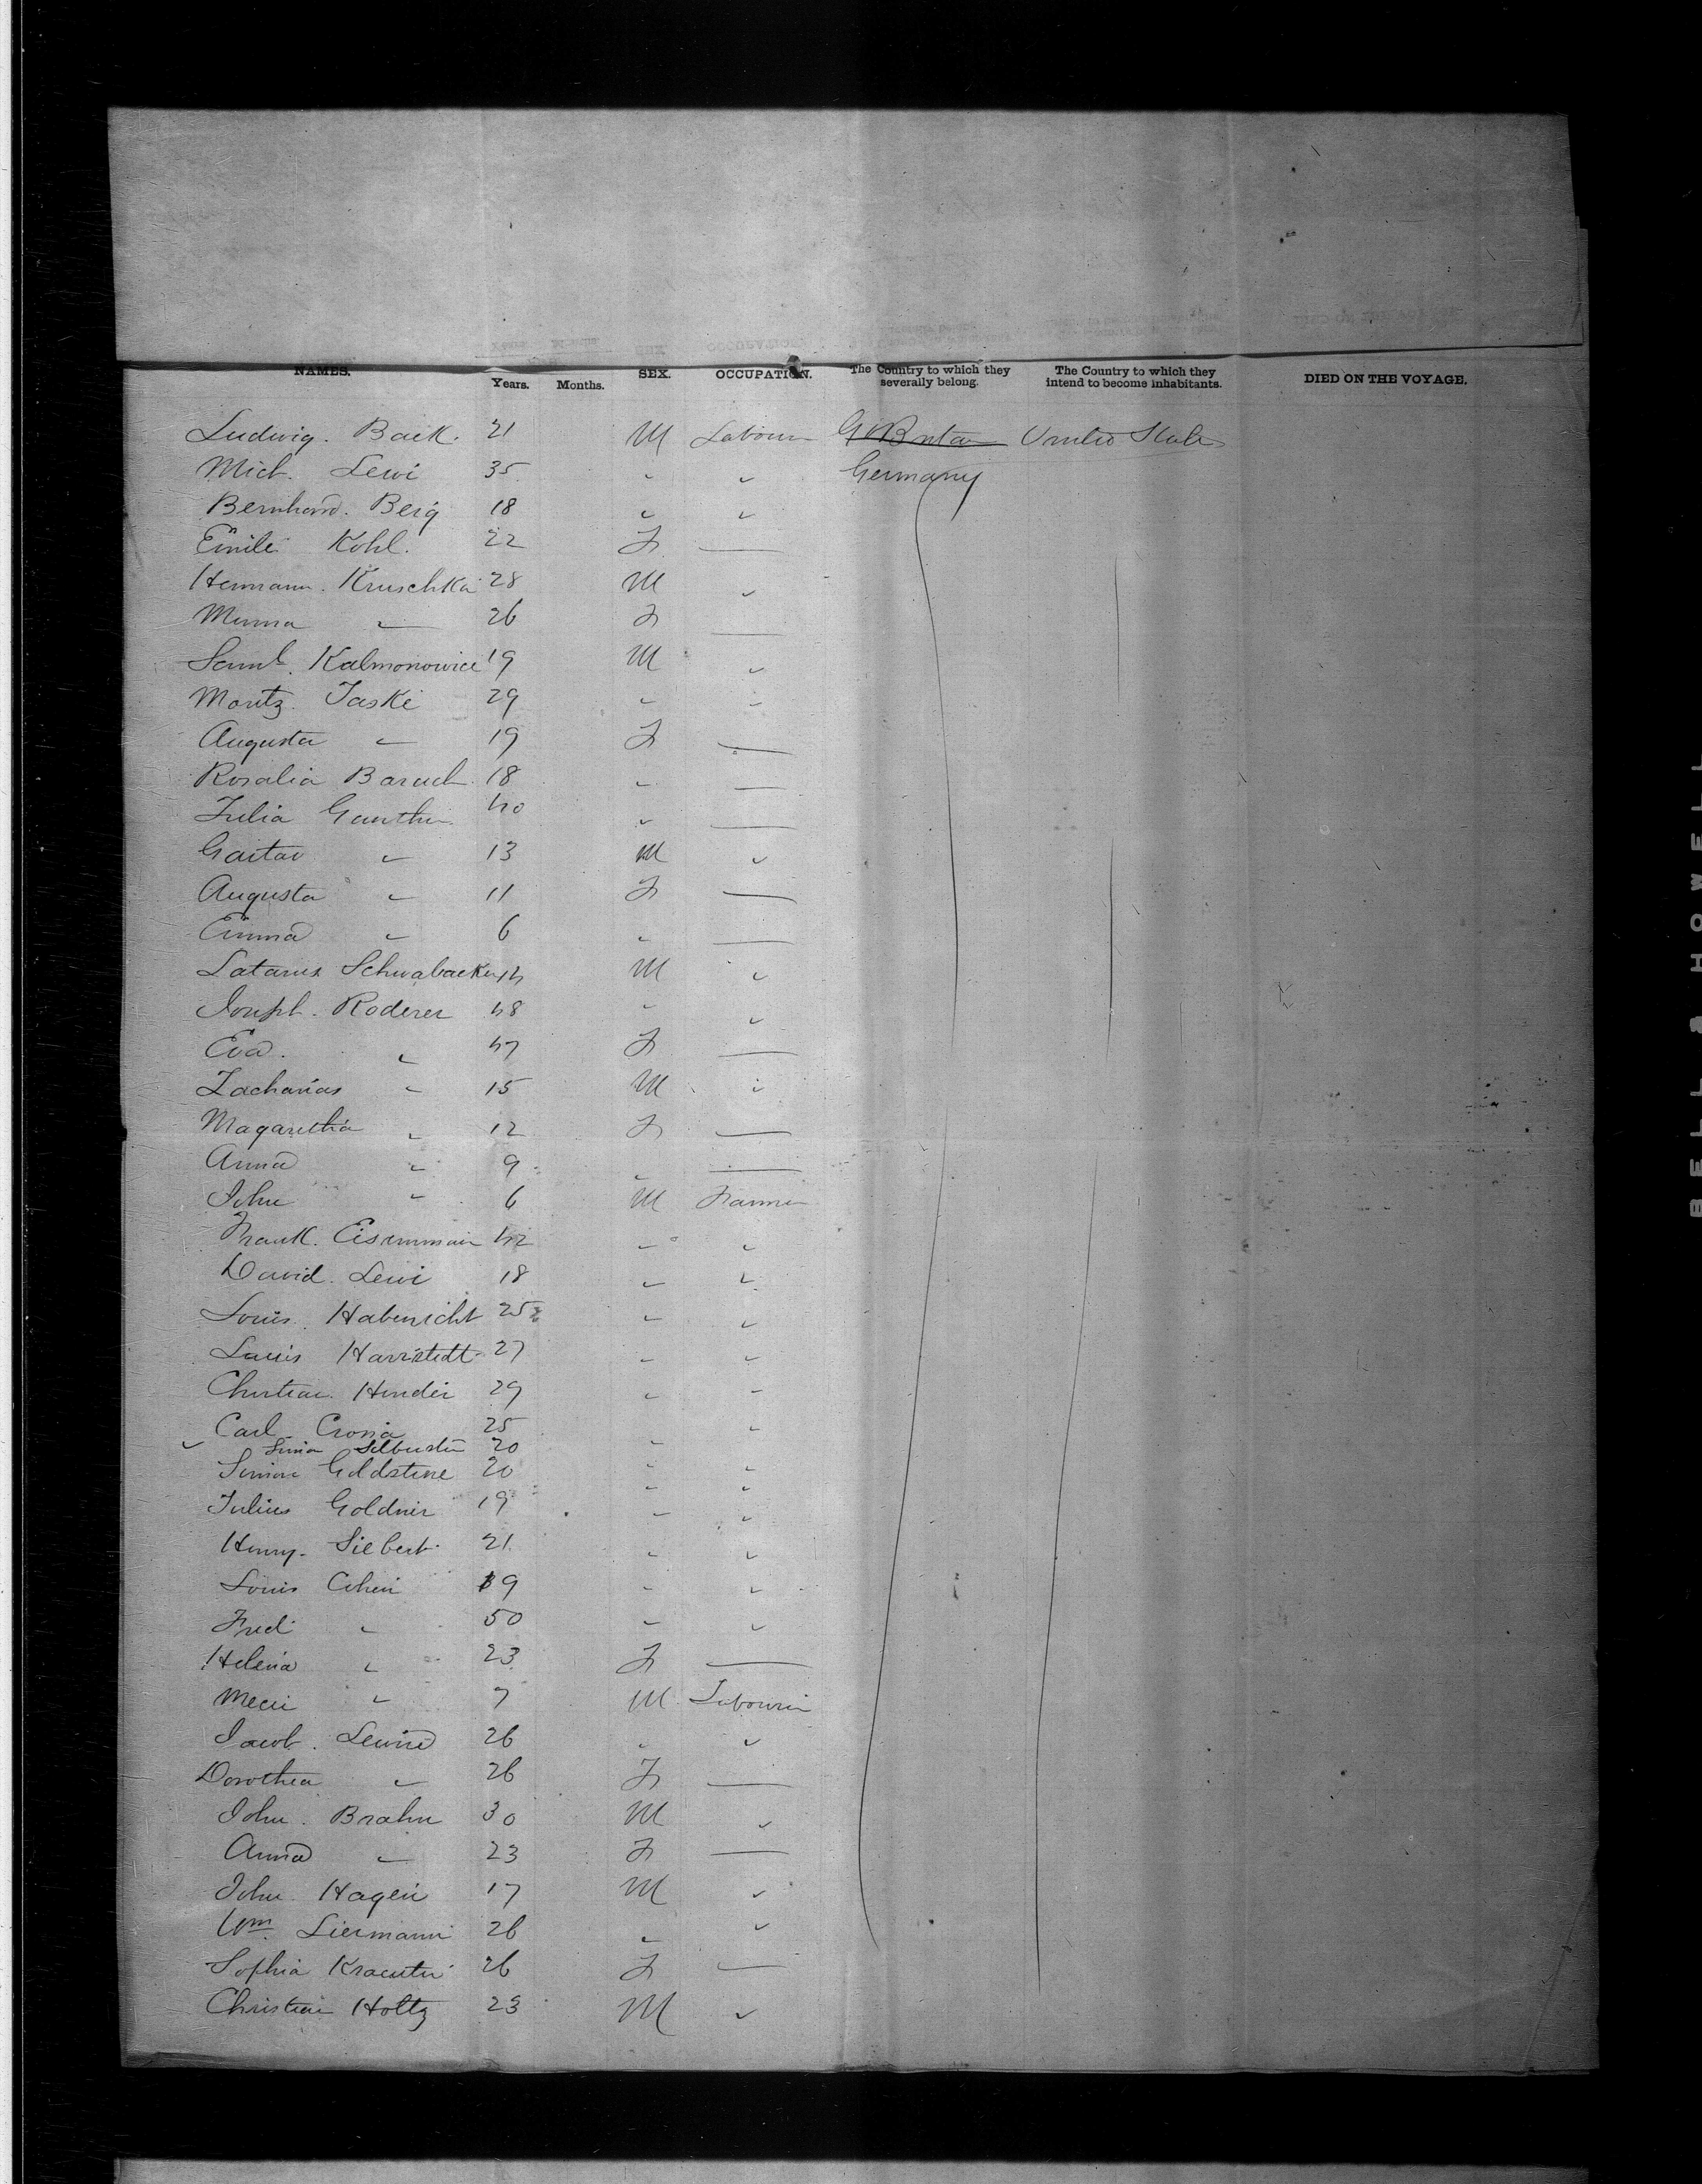 NAMES. Years. Months. SEX. OCCUPATION. The Country to which they severally belong. The Country to which they intend to become inhabitants. DIED ON THE VOYAGE.
Ludwig. Back. 21 M Labourer Gt Britain United States
Mich. Lewi 35 " " Germany
Bernhard. Berg 18 " "
Emile Kohl. 22 F —
Hermann. Kruschka 28 M "
Minna " 26 F —
Saml. Kalmonowice 19 M "
Moritz Jaske 29 " "
Augusta " 19 F —
Rosalia Baruch 18 " —
Julia Gunther 40 " —
Gustav " 13 M "
Augusta " 11 F —
Emma " 6 " —
Schwabacker 14 M "
Joseph. Roderer 48 " "
Eva. " 47 F —
Zacharias " 15 M "
Magaretha " 12 F —
Anna " 9 " —
John " 6 M Farmer
Frank. Eisenmain 42 " "
David. Lewi 18 " "
Louis. Habenicht 25 " "
Louis Harrstedt 27 " "
Christian. Hinder 29 " "
Carl Crosia 25 " "
Silberstein 20 " "
Simon Goldstine 20 " "
Julius Goldner 19 " "
Henry. Siebert. 21 " "
Louis Cohen 19 " "
Fred " 50 " "
Helena " 23 F —
" 7 M Labourer
Jacob. Lewin 26 " "
Dorothea " 26 F —
John. Brahn 30 M "
Anna " 23 F —
John Hagen 17 M "
Wm. Liermann 26 " "
Sophia Kraeuter 26 F —
Christian Holtz 23 M "
BELL & HOWELL